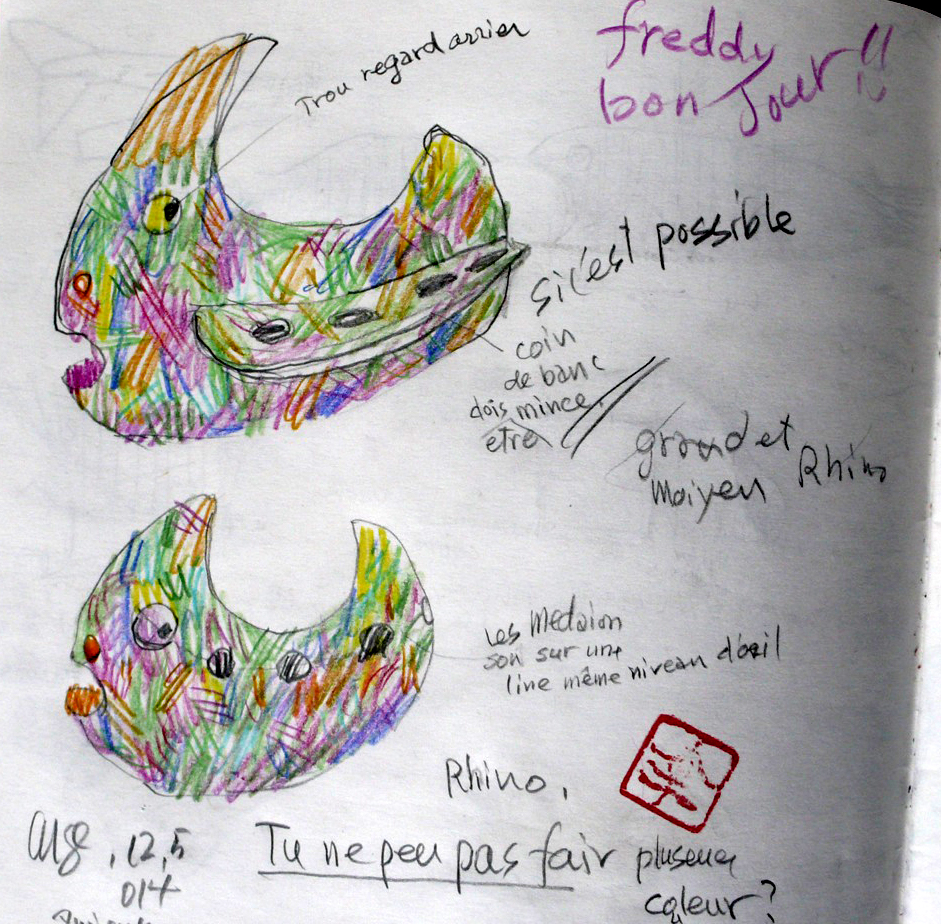 freddy
bon Jour!!
Trou regard arrier
si c'est possible
coin
de banc
dois mince
etre
grand et
moiyen Rhino
Les Medaion
son sur une
line même niveau d'œil
Rhino,
12,5
014
Tu ne peu pas fair pluseur
couleur?